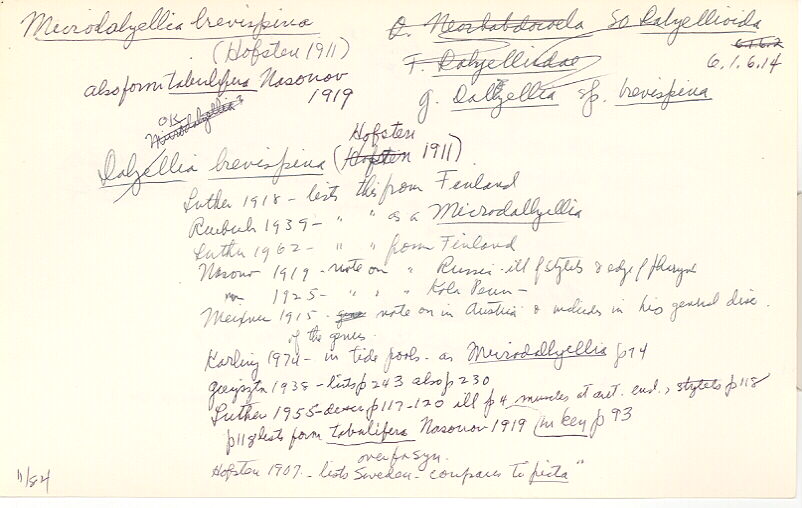 Microdalyellia brevispina
(Hofsten 1911)
also form tabulifera Nasonov
1919
O. Neorhabdocoela SO Dalyellioida
F. Dalyelliidae 6.1.6.2
6.1.6.14
g. Dalyellia sp. brevispina
OK
Microdalyellia?
Dalyellia brevispina (Hofsten 1911)
Luther 1918 - lists this from Finland
1939 - " " as a Microdallyellia
Luther 1962 - " " from Finland
Nasonov 1919 - note on " Russia - ill of stylets & edge of pharynx
1925 - " " " Kola Penn -
Meixner 1915 - note on in Austria & includes in his general disc.
of the genus.
Karling 1974 - in tide pools - as Microdallyellia p74
1938 - lists p243 also p230
Luther 1955 - descr p117-120 ill p4 muscles at ant. end, stylets p118
p118 lists form tabulifera Nasonov 1919 (in key p93
over for syn.
Hofsten 1907 - lists Sweden - compares to picta"
11/84